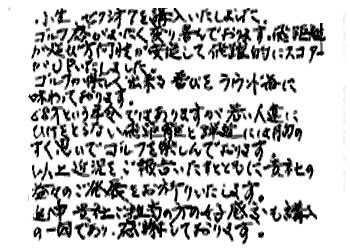 小生、ゼクシオ7を購入いたしました。
ゴルフ仲間によくなく変り喜んでおります。飛距離
が延び方向性が安定して飛躍的にスコアー
がUPいたしました。
ゴルフが楽しく出来る喜びをラウンド毎に
味わっております。
68才という年令ではありますが若い人達に
ひけをとらない飛距離と弾道には胸の
すく思いでゴルフを楽しんでおります
以上近況をご報告いたすとともに貴社の
益々のご発展をお祈りいたします。
追伸 貴社ご担当の方の好感さも購入
の一因であり感謝しております。